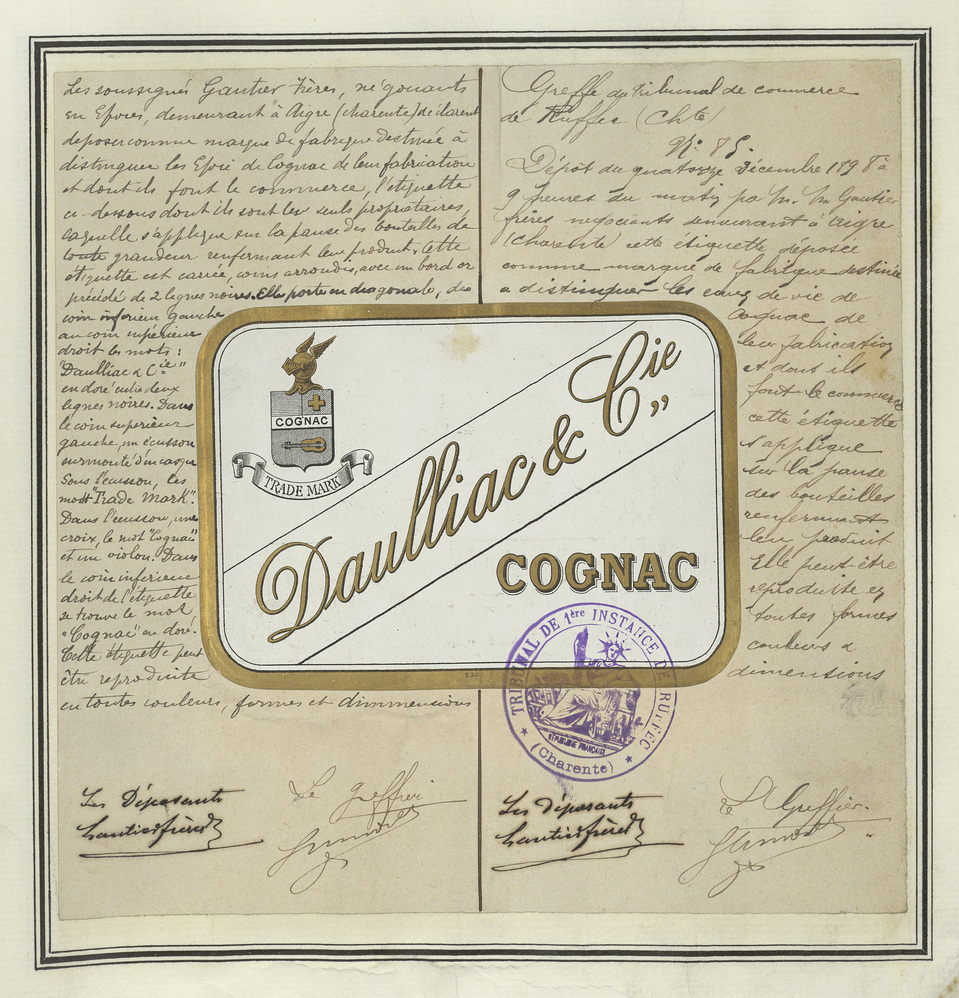 Les soussignés Gautier Frères, négociants
en Epices, demeurant à Aigre (Charente) déclarent
déposer comme marque de fabrique destinée à
distinguer les Epcie de Cognac de leur fabrication
et dont ils font le commerce, l'étiquette
ci-dessous dont ils sont les seuls propriétaires,
laquelle s'applique sur la panse des bouteilles de
toute grandeur renfermant leur produit. Cette
étiquette est carrée, coins arrondis, avec un bord or
précédé de 2 lignes noires. Elle porte en diagonale, du
coin inférieur gauche
au coin supérieur
droit les mots :
"Daulliac & Cie"
en doré entre deux
lignes noires. Dans
le coin supérieur
gauche, un écusson
surmonté d'un casque
Sous l'écusson, les
mots "Trade Mark".
Dans l'écusson, une
croix, le mot "Cognac"
et un violon. Dans
le coin inférieur
droit de l'étiquette
se trouve le mot
"Cognac" en doré.
Cette étiquette peut
être reproduite
en toutes couleurs, formes et dimmensions
Les Déposants
Gautier frères
Le Greffier
Greffe du Tribunal de commerce
de Ruffec (Chte)
No 85.
Dépôt du quatorze Décembre 189 à
9 heures du matin par M. M. Gautier
frères négociants demeurant à Aigre
(Charente) cette étiquette déposée
comme marque de fabrique destinée
a distinguer les eaux de vie de
Cognac de
leur fabrication
et dont ils
font le commerce
cette étiquette
s'applique
sur la panse
des bouteilles
renfermant
leur produit
Elle peut être
reproduite en
toutes formes
couleurs &
dimensions
Les déposants
Gautier frères
Le Greffier.
COGNAC
TRADE MARK
Daulliac & Cie „
COGNAC
TRIBUNAL DE 1ère INSTANCE DE RUFFEC
RÉPUBLIQUE FRANÇAISE
(Charente)